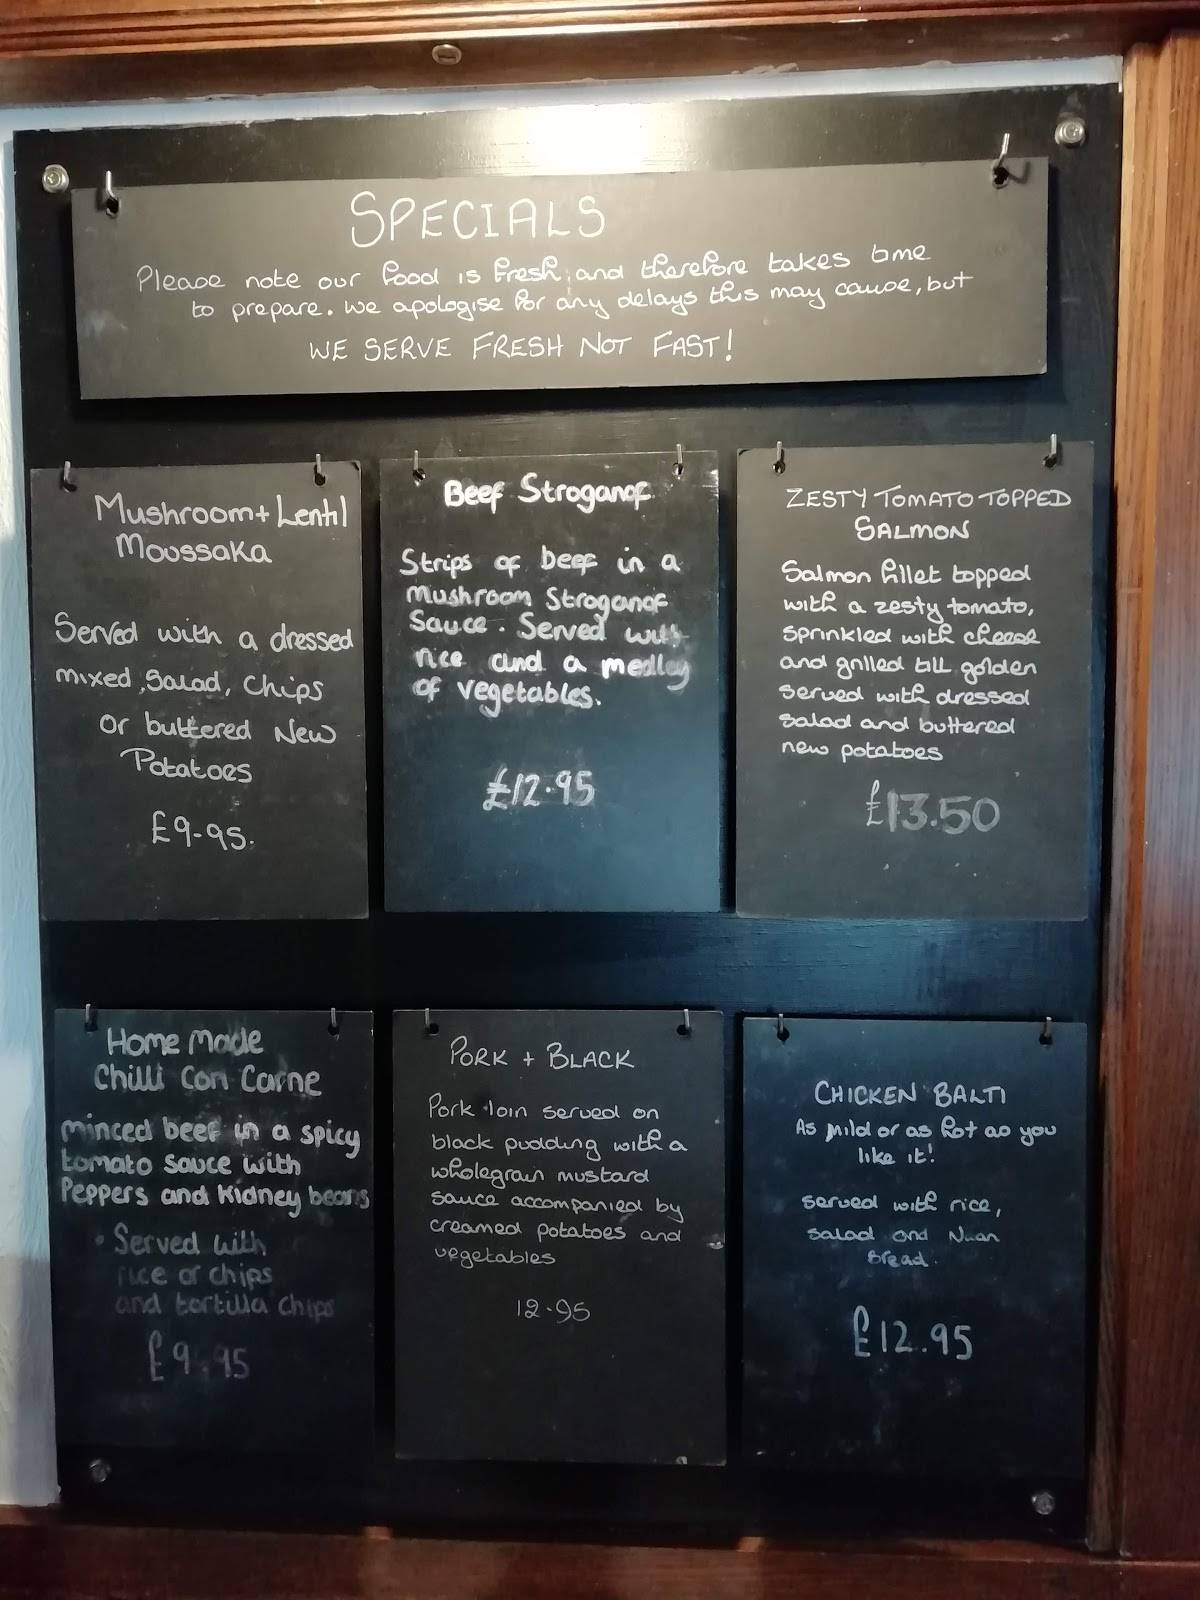 SPECIALS
Please note our food is fresh and therefore takes time
to prepare. We apologise for any delays this may cause, but
WE SERVE FRESH NOT FAST!
Mushroom + Lentil
Moussaka
Served with a dressed
mixed salad, chips
or buttered New
Potatoes
£9-95.
Beef Stroganof
Strips of beef in a
Mushroom Stroganof
Sauce. Served with
rice and a medley
of vegetables.
£12.95
ZESTY TOMATO TOPPED
SALMON
Salmon fillet topped
with a zesty tomato,
sprinkled with cheese
and grilled till golden
served with dressed
salad and buttered
new potatoes
£13.50
Home Made
Chilli Con Carne
Minced beef in a spicy
tomato sauce with
Peppers and Kidney beans
• Served with
rice or chips
and tortilla chips
£9.95
PORK + BLACK
Pork loin served on
black pudding with a
wholegrain mustard
sauce accompanied by
creamed potatoes and
vegetables
12.95
CHICKEN BALTI
As Mild or as hot as you
like it!
served with rice,
salad and Naan
Bread.
£12.95